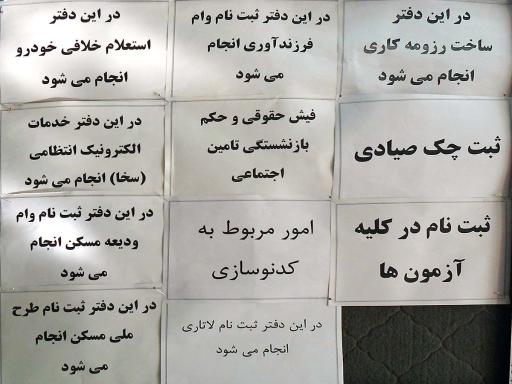 در این دفتر
ساخت رزومه کاری
انجام می شود
در این دفتر ثبت نام وام
فرزندآوری انجام
می شود
در این دفتر
استعلام خلافی خودرو
انجام می شود
ثبت چک صیادی
فیش حقوقی و حکم
بازنشستگی تامین
اجتماعی
در این دفتر خدمات
الکترونیک انتظامی
(سخا) انجام می شود
ثبت نام در کلیه
آزمون ها
امور مربوط به
کدنوسازی
در این دفتر ثبت نام وام
ودیعه مسکن انجام
می شود
در این دفتر ثبت نام لاتاری
انجام می شود
در این دفتر ثبت نام طرح
ملی مسکن انجام
می شود